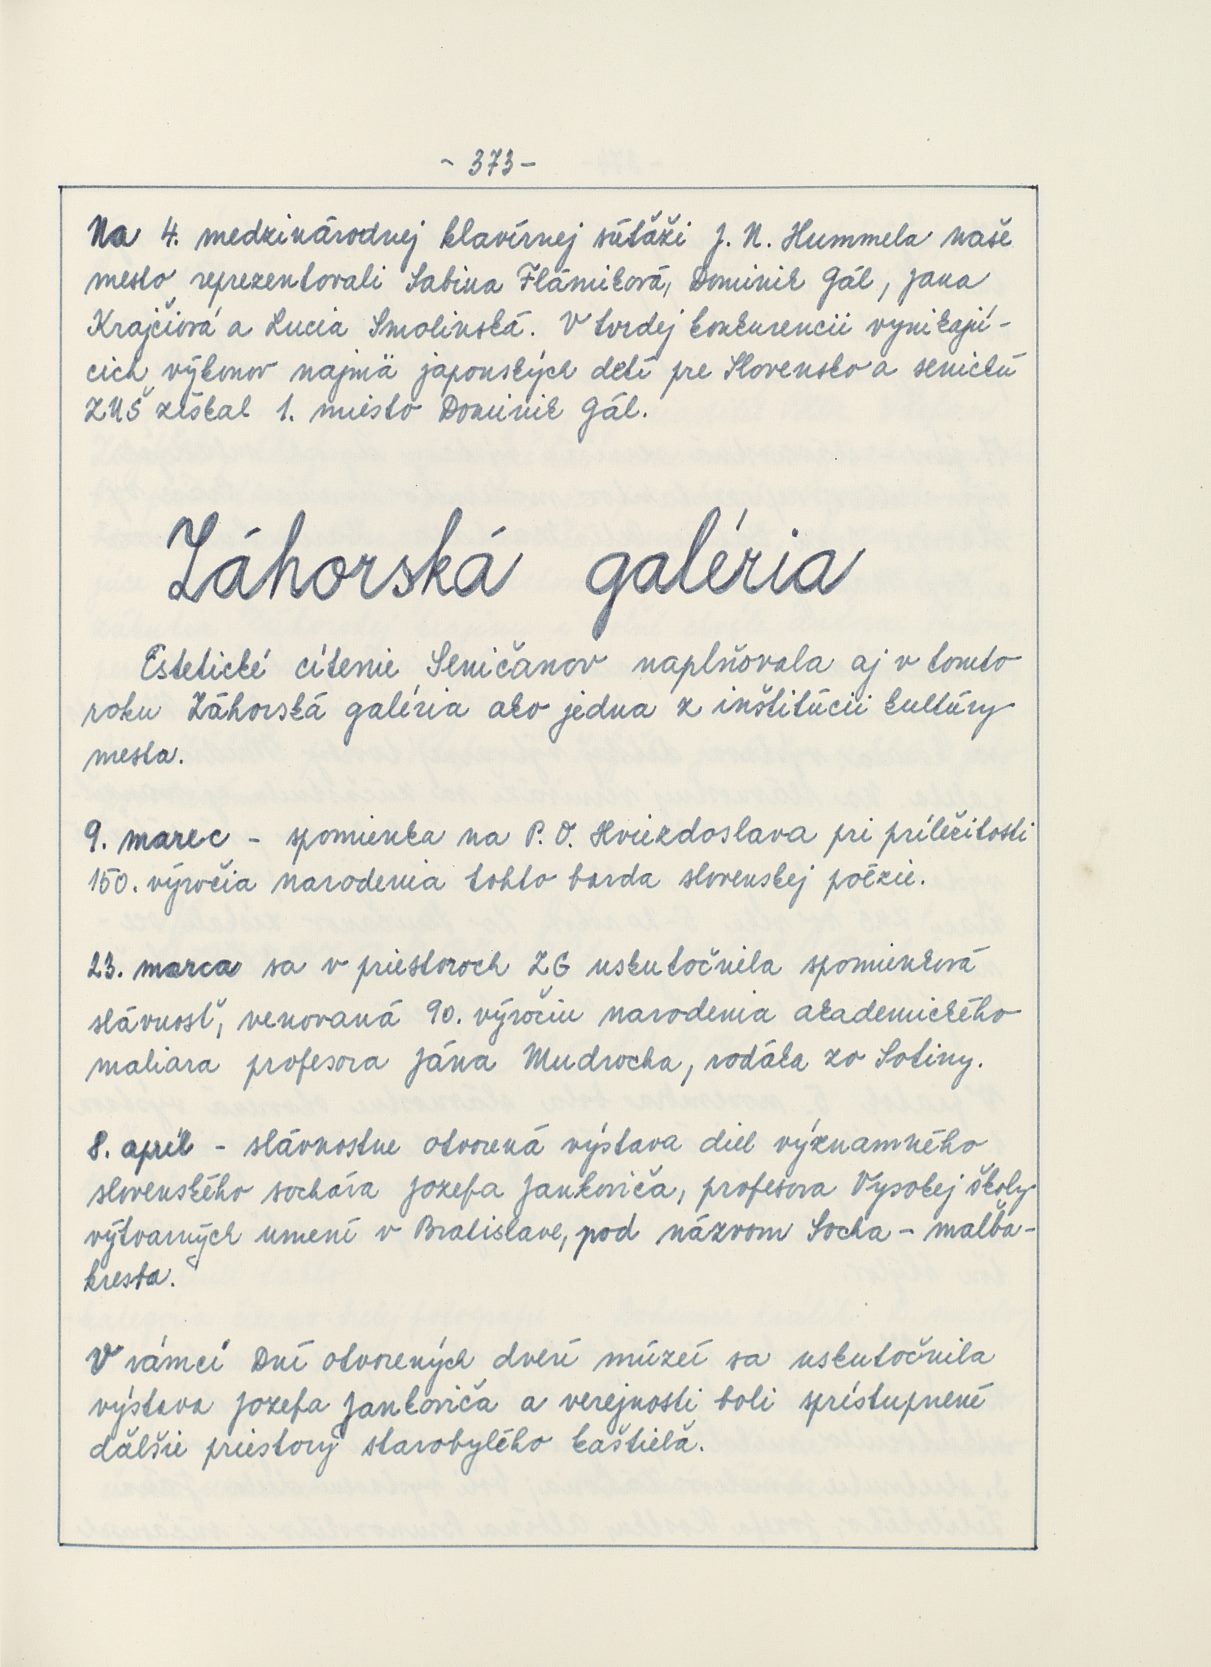 - 373 -
Na 4. medzinárodnej klavírnej súťaži J. N. Hummela naše
mesto reprezentovali Sabina Flámiková, Dominik Gál, Jana
Krajčiová a Lucia Smolinská. V tvrdej konkurencii vynikajú-
cich výkonov najmä japonských detí pre Slovensko a senickú
ZUŠ získal 1. miesto Dominik Gál.
Záhorská galéria
Estetické cítenie Seničanov naplňovala aj v tomto
roku Záhorská galéria ako jedna z inštitúcií kultúry
mesta.
9. marec - spomienka na P. O. Hviezdoslava pri príležitosti
150. výročia narodenia tohto barda slovenskej poézie.
23. marca sa v priestoroch ZG uskutočnila spomienková
slávnosť, venovaná 90. výročiu narodenia akademického
maliara profesora Jána Mudrocha, rodáka zo Sotiny.
8. apríl - slávnostne otvorená výstava diel významného
slovenského sochára Jozefa Jankoviča, profesora Vysokej školy
výtvarných umení v Bratislave, pod názvom Socha - maľba -
kresba.
V rámci Dní otvorených dverí múzeí sa uskutočnila
výstava Jozefa Jankoviča a verejnosti boli sprístupnené
ďalšie priestory starobylého kaštieľa.